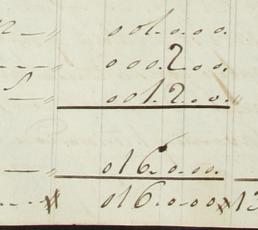 001.0.0.0.
000.2.0.0.
001.2.0.0.
016.0.0.0.
016.0.0.0